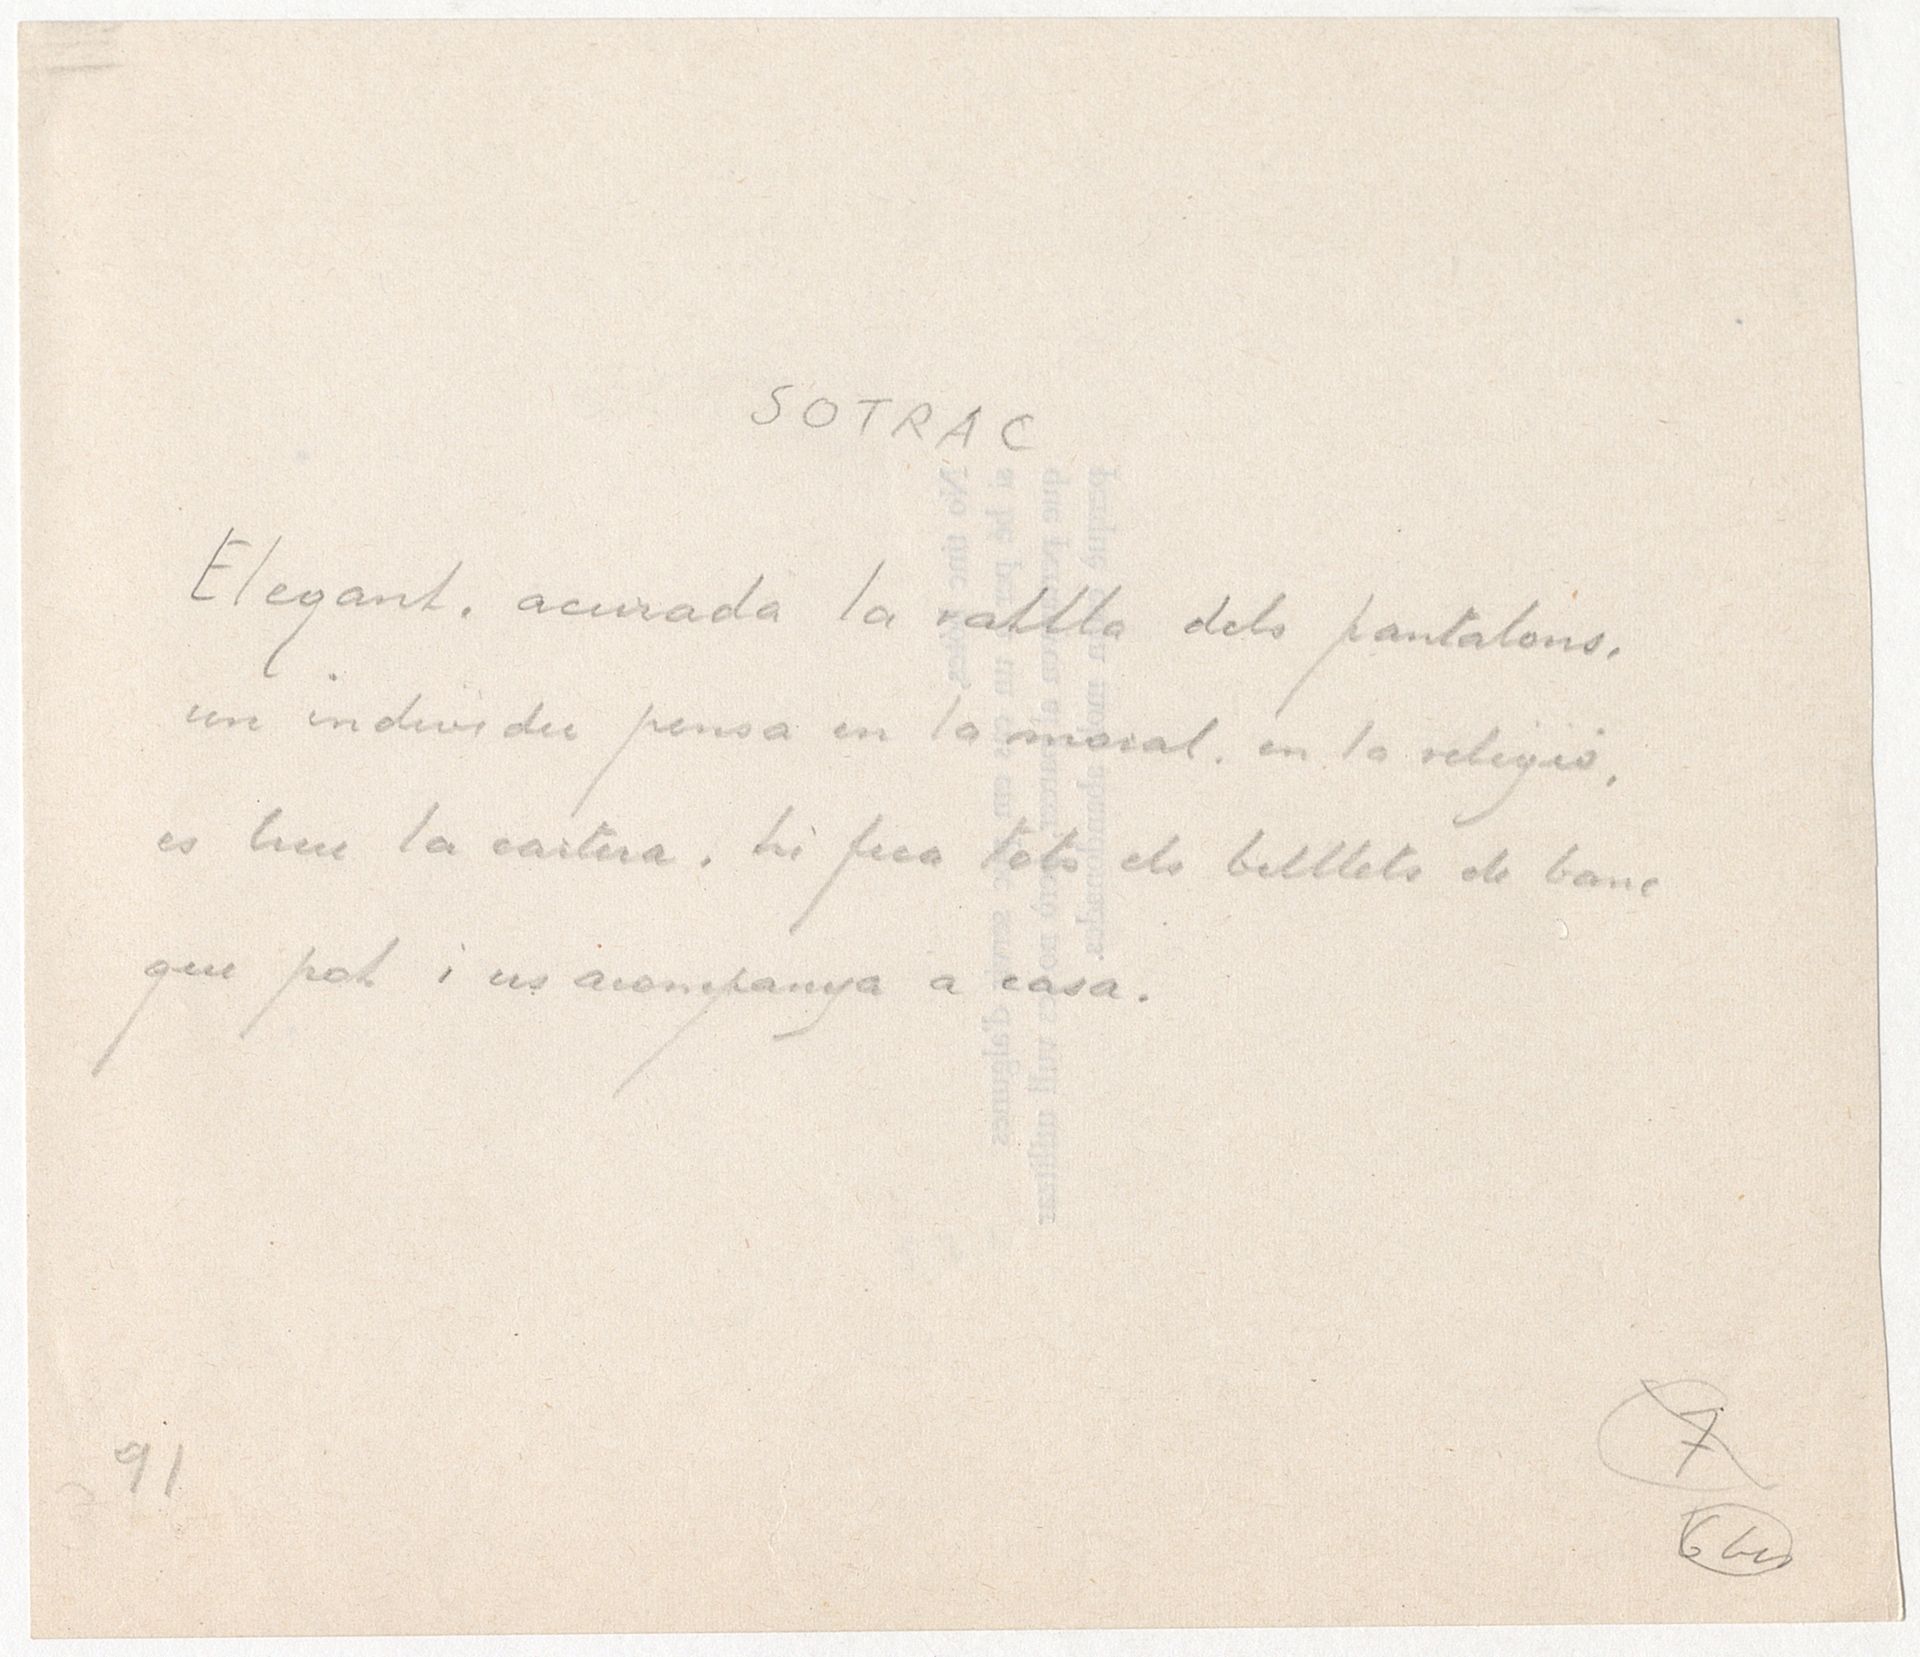 SOTRAC
Elegant, acurada la ratlla dels pantalons,
un individu pensa en la moral, en la religió,
es treu la cartera, hi fica tots els bitllets de banc
que pot i us acompanya a casa.
91
7
6 bis